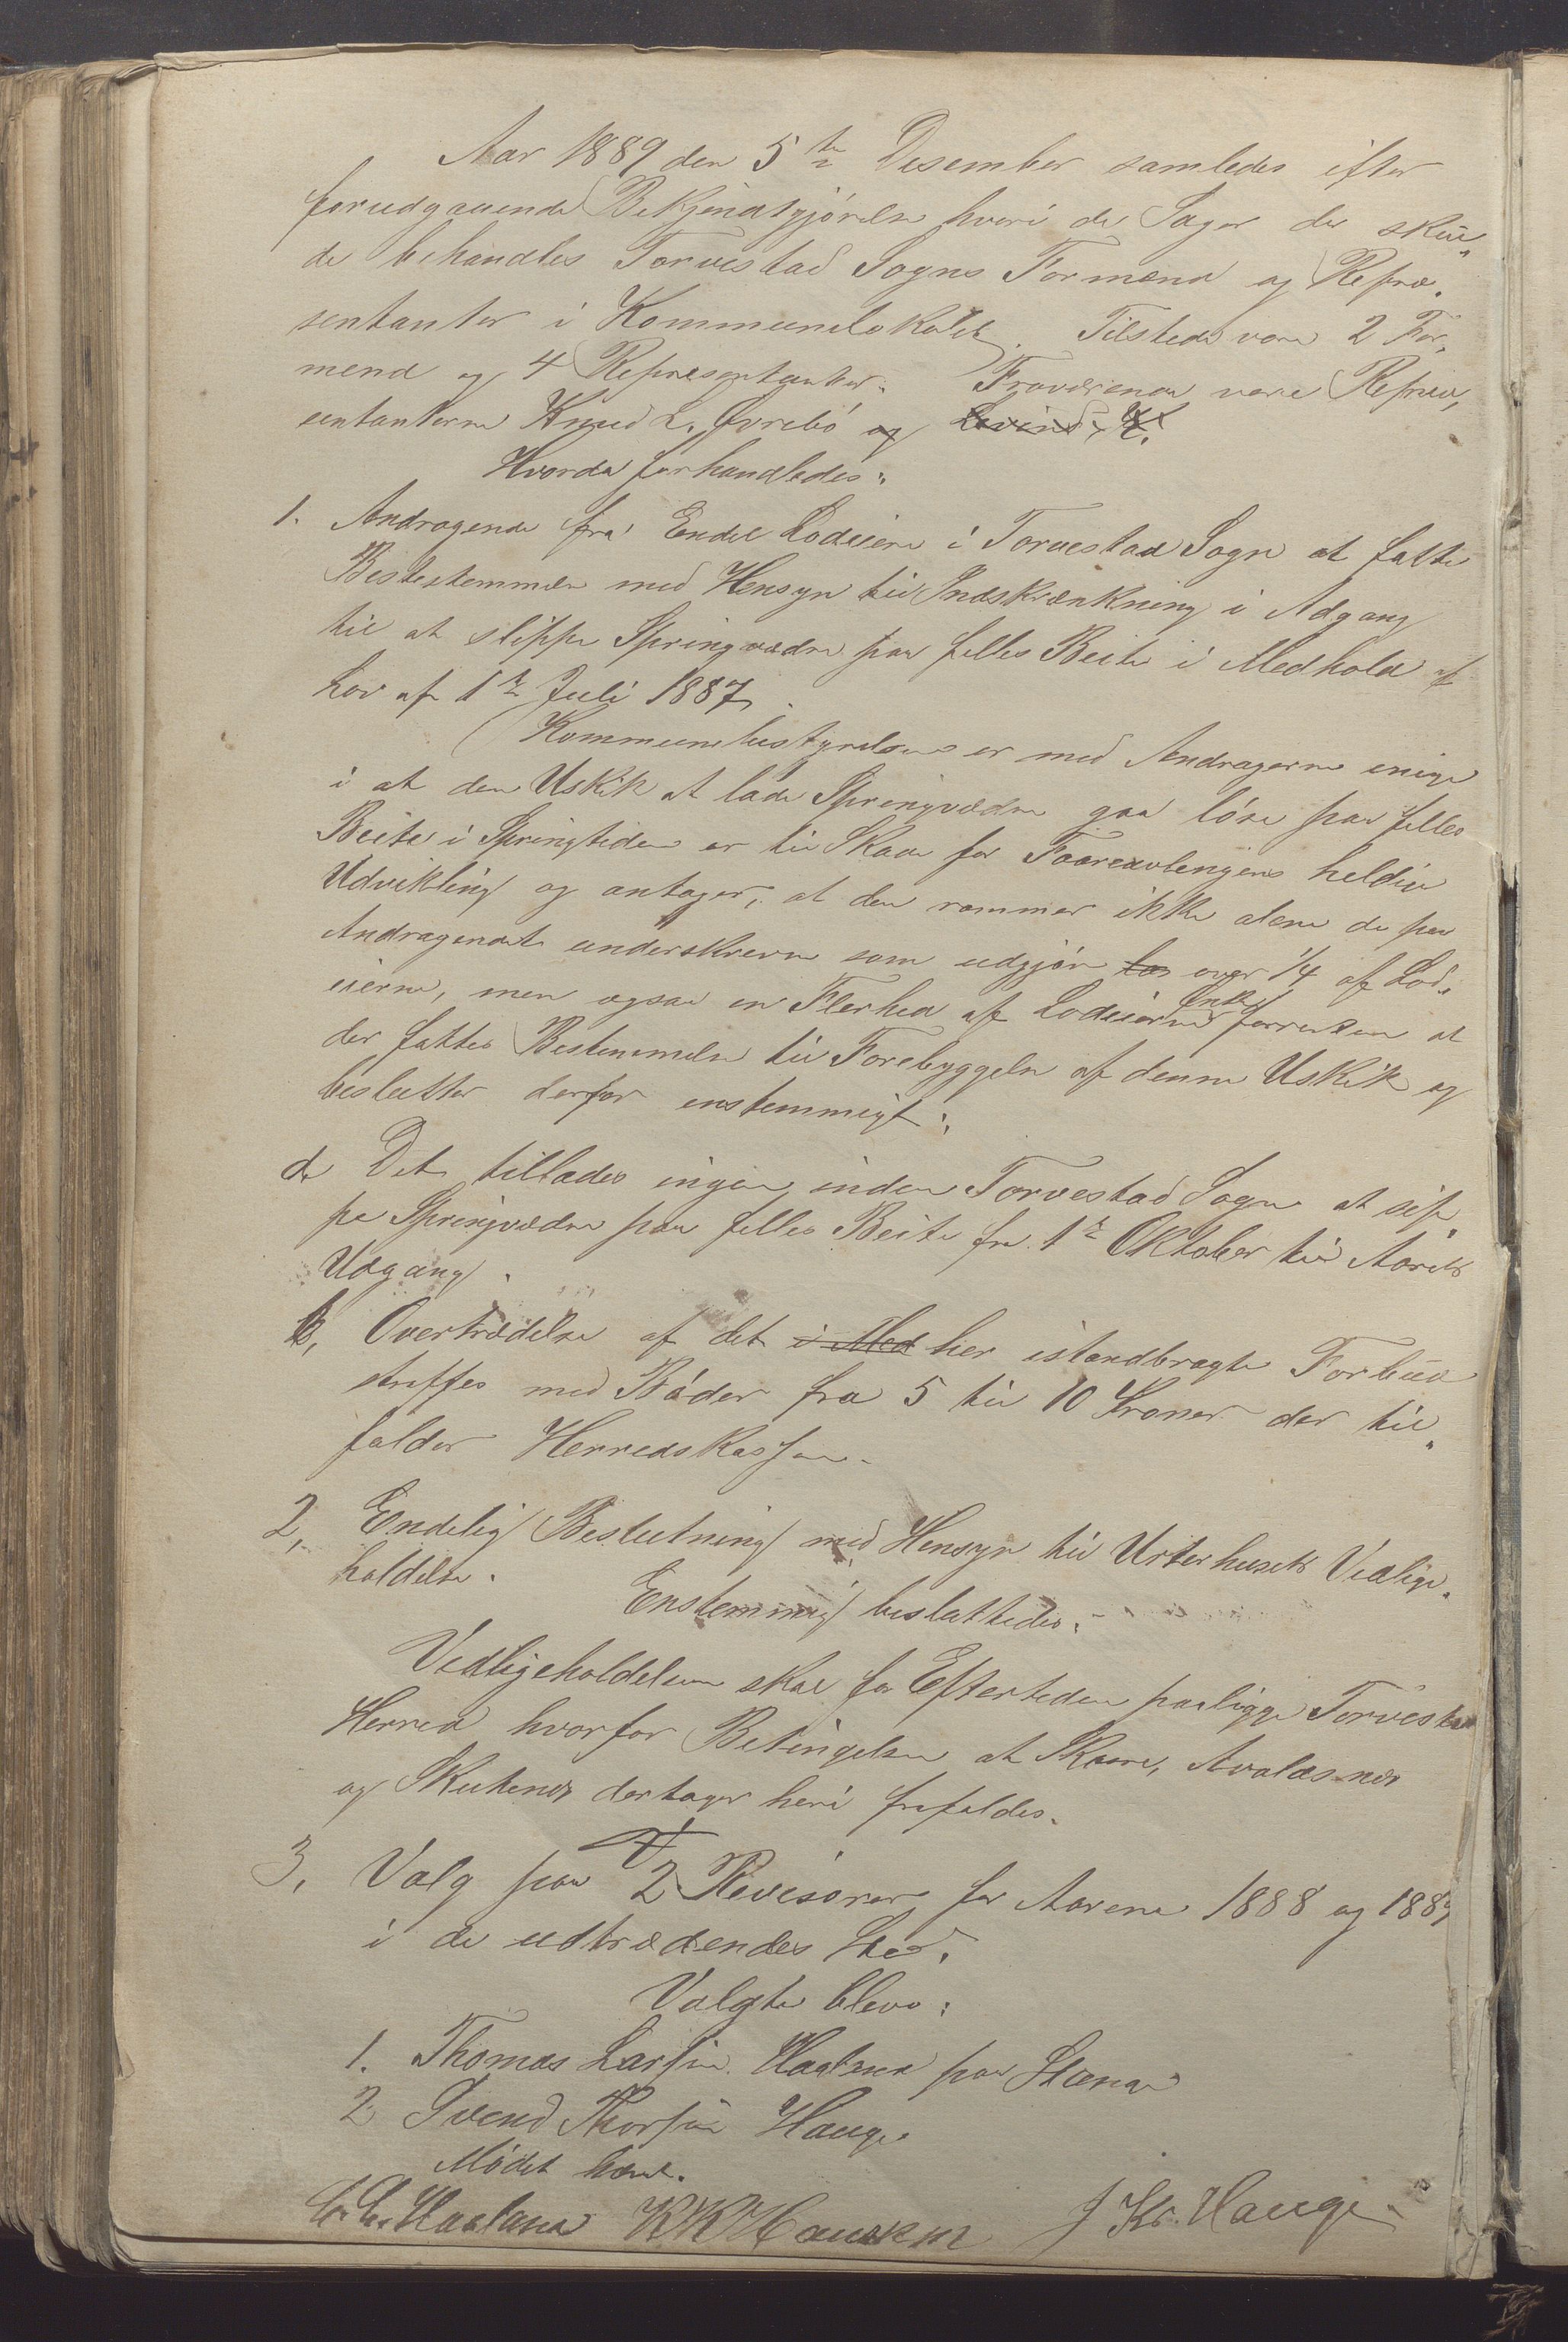 Aar 1889 den 5te Desember samledes efter
forudgaaende Bekjendtgjörelse hvori de Sager der skul„
de behandles Torvestad Sogns Formænd og Repræ„
sentanter i Kommunelokalet. Tilstede vare 2 For„
mend og 4 Representanter. Fraværende vare Repræ„
sentanterne Knud L. Övrebö og
Hvorda forhandledes:
1. Andragende fra Endel Lodeiere i Torvestad Sogn at fatte
Bestestemmelse med Hensyn til Indskrænkning i Adgang
til at slippe Springvædre paa felles Beite i Medhold af
Lov af 1ste Juli 1887.
Kommunebestyrelsen er med Andragerne enige
i at den Uskik at lade Springvædre gaa löse paa felles
Beite i Springtiden er til Skade for Faareavlengens heldige
Udvikling og antager, at den rammer ikke alene de paa
Andragendet underskrevne som udgjör over 1/4 af Lod„
eierne, men ogsaa en Flerhed af Lodeierne Önske forresten at
der fattes Bestemmelse til Forebyggelse af denne Uskik og
beslutter derfor enstemmigt:
a Det tillades ingen inden Torvestad Sogn at slip„
pe Springvædre paa felles Beite fra 1ste Oktober til Aarets
Udgang.
b, Overtrædelse af det i Med her istandbragte Forbud
straffes med Böder fra 5 til 10 Kroner der til„
falder Herredskassen.
2, Endelig Beslutning med Hensyn til Urterhusets Vedlige„
holdelse.
Enstemmig besluttedes:
Vedligeholdelsen skal for Eftertiden paaligge Torvestad
Herred hvorfor Betingelsen at Skaare, Avaldsnes
og Skudenes deltager heri frafaldes.
3, Valg paa 2 Revisorer for Aarene 1888 og 1889
i de udtrædendes Sted.
Valgte bleve:
1. Thomas Larsen Haaland paa Stange
2 Svend Thorsen Hauge
Mödet hævet.
C. C. Haaland K K Hausken J Kr. Hauge